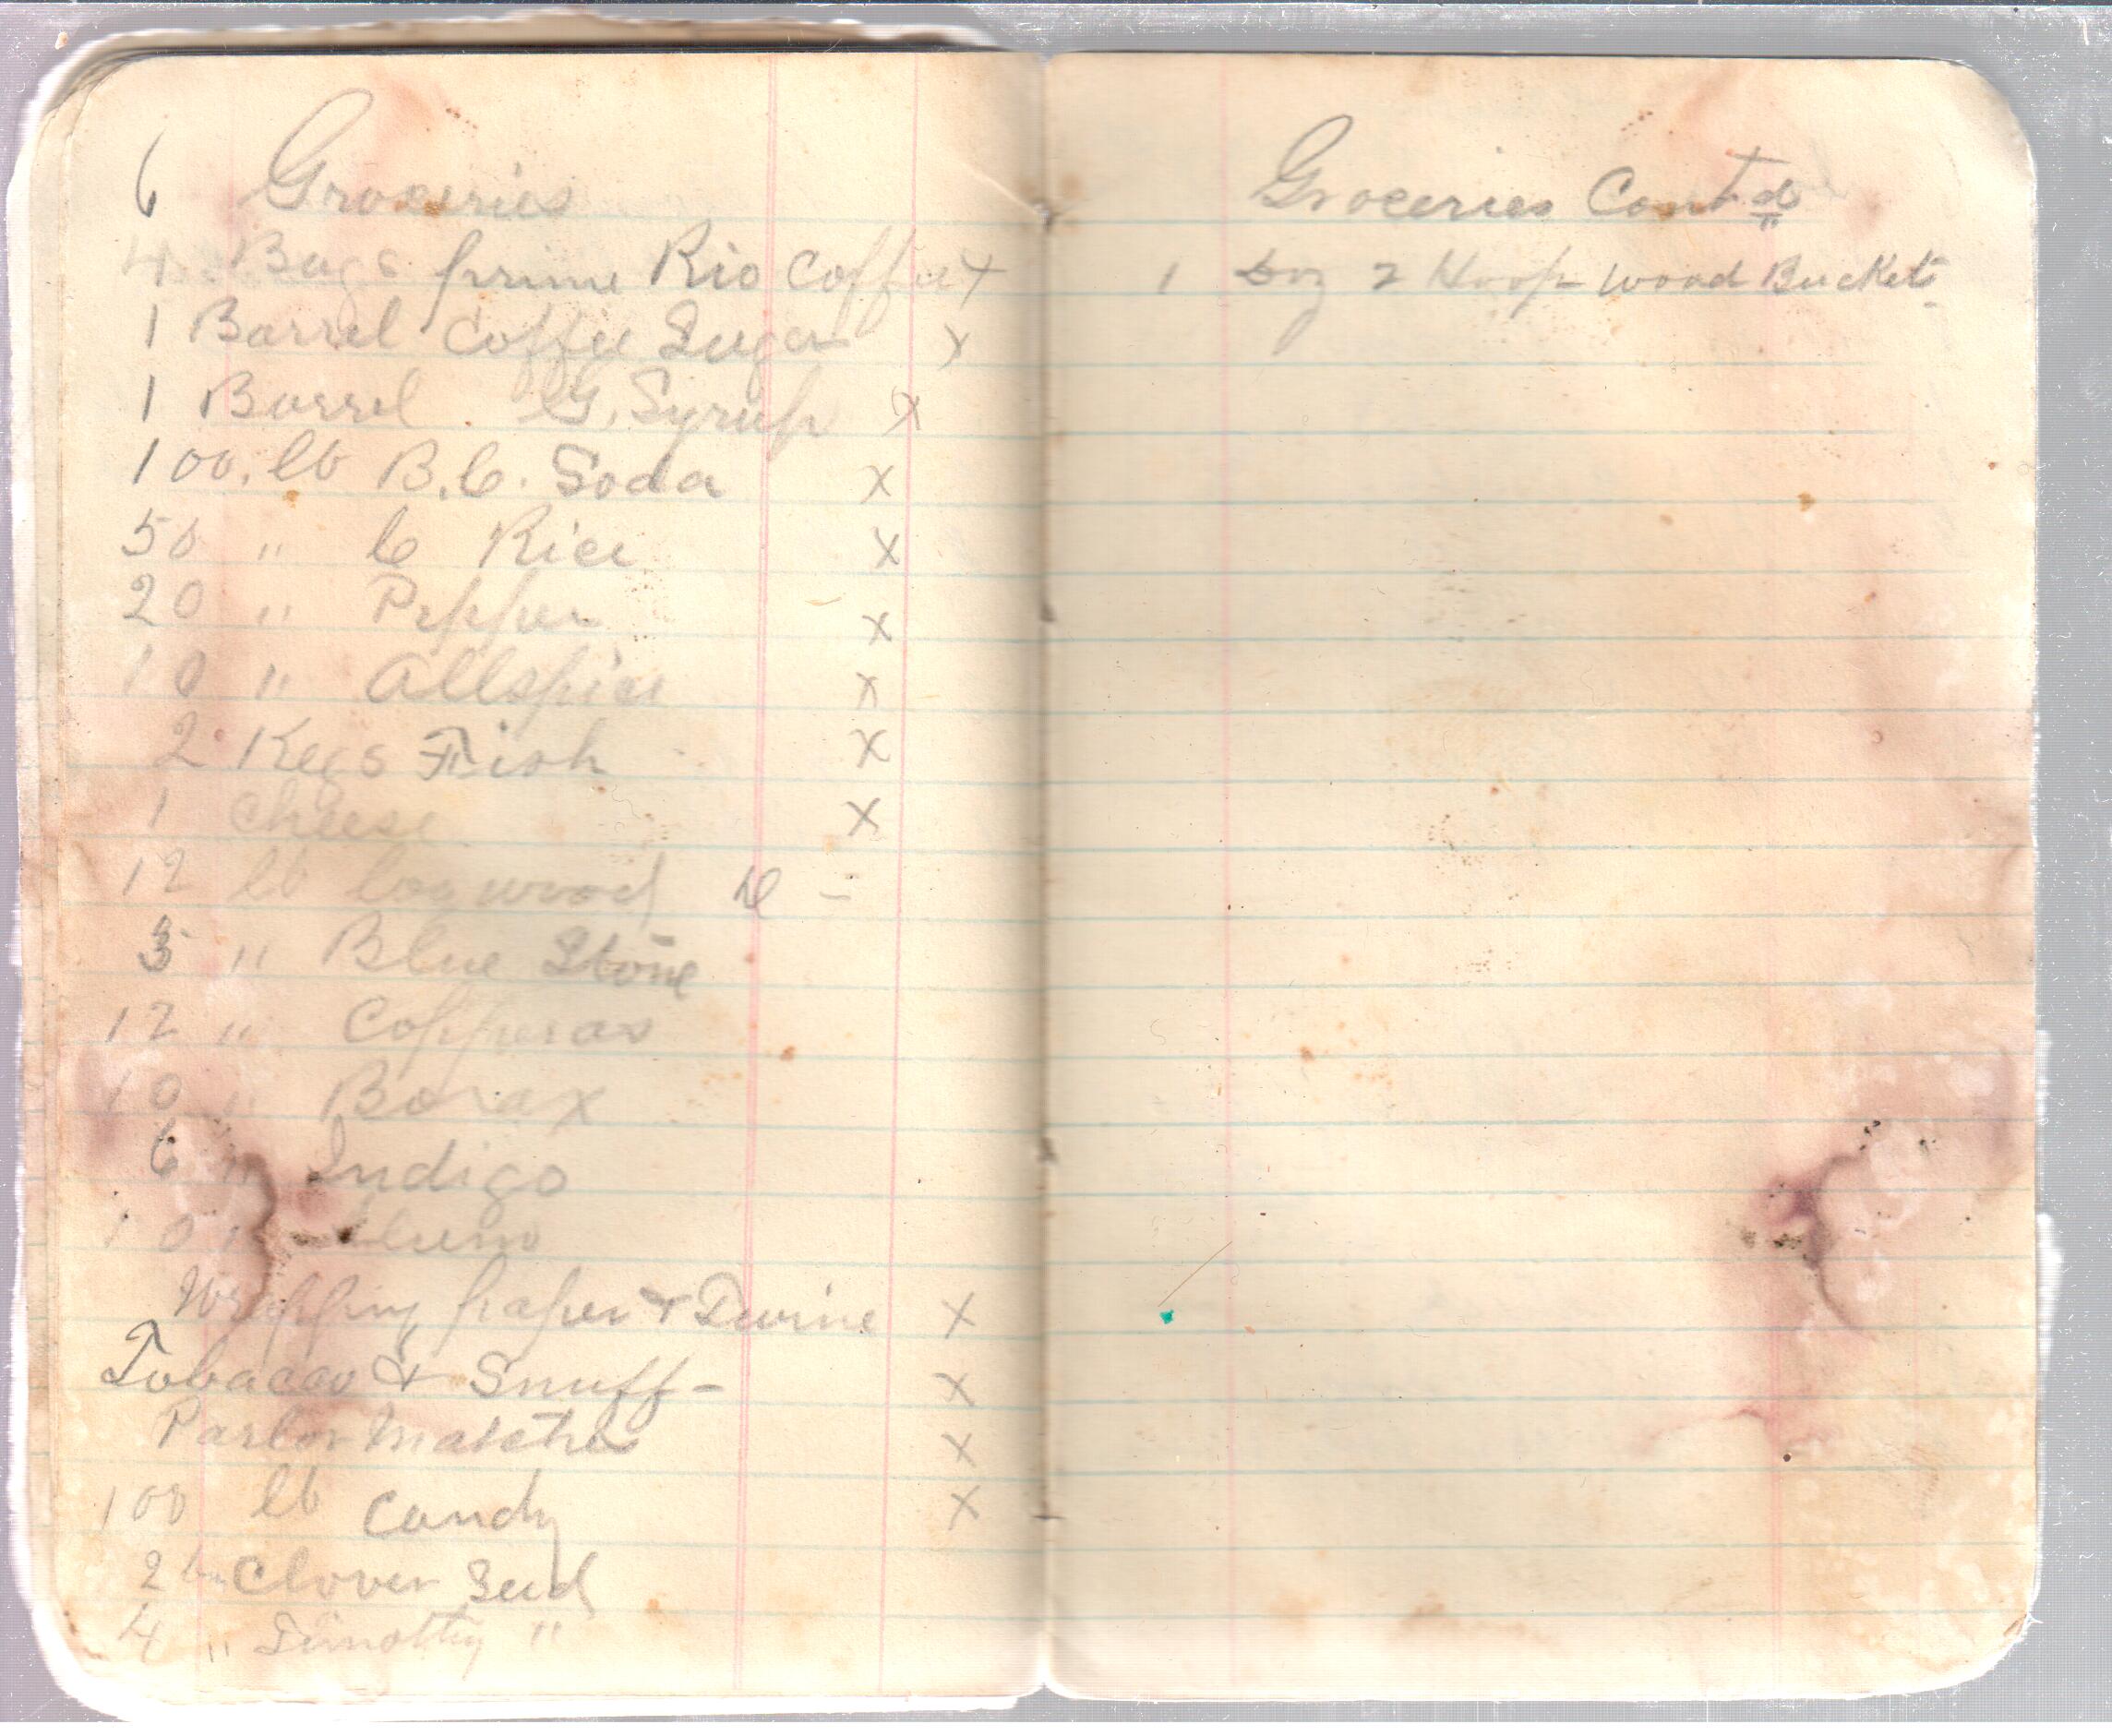 6 Groceries
4 Bags prime Rio Coffee x
1 Barrel Coffee Sugar x
1 Barrel G. Syrup x
100. lb B.C. Soda x
50 " C Rice x
20 " Pepper x
10 " Allspice x
2 Kegs Fish x
1 Cheese x
12 lb Logwood -
" Blue Stone
12 " Copperas
10 " Borax
6 " Indigo
10 "
Wrapping paper & Twine x
Tobacco & Snuff - x
Parlor Matches x
100 lb Candy x
2 Clover Seed
4 " Timothy "
Groceries Cont'd
1 Doz 2 Hoop Wood Buckets